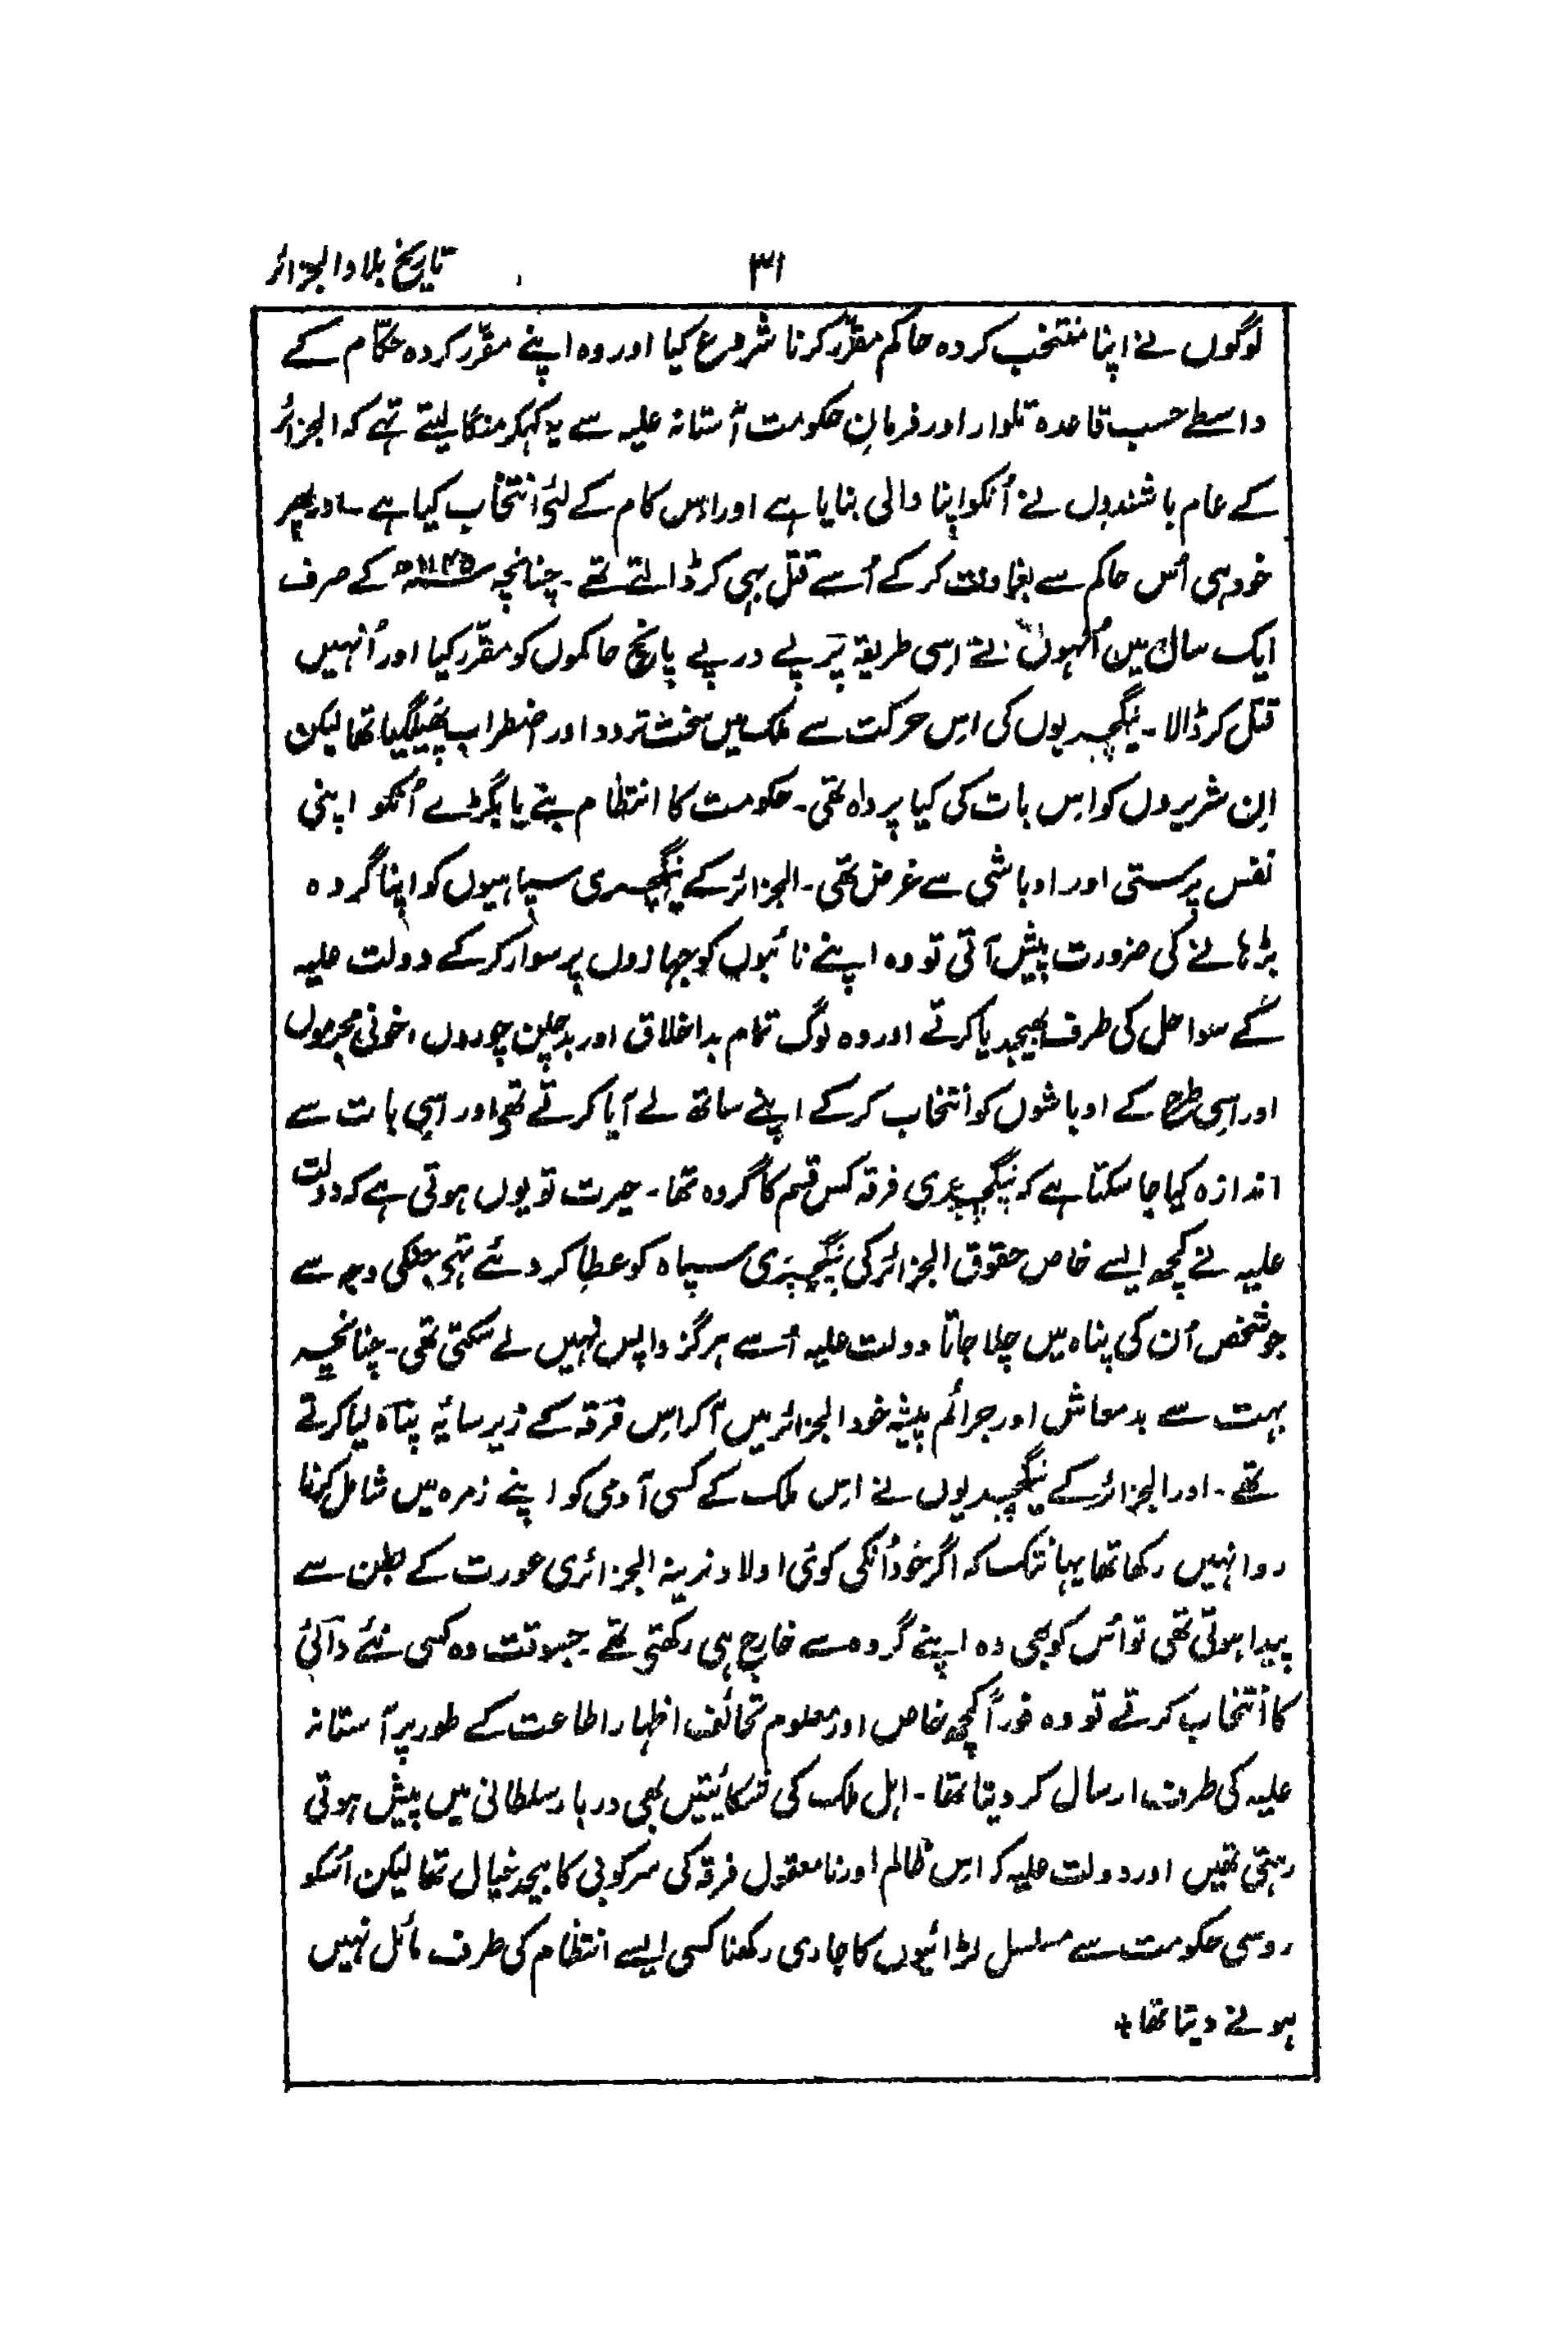 ۳۱ تاریخ بلاد الجزائر
لوگوں نے اپنا منتخب کردہ حاکم مقرّر کرنا شروع کیا اور وہ اپنے مقرّر کردہ حکّام کے
واسطے حسب قاعدہ تلوار اور فرمانِ حکومت آستانہ علیہ سے یہ کہکر منگا لیتے تہے کہ الجزائر
کے عام باشندوں نے اُنکو اپنا والی بنایا ہے اور اس کام کے لئے انتخاب کیا ہے ۔ اور پھر
خود ہی اُس حاکم سے بغاوت کر کے اُسے قتل بہی کر ڈالتے تھے ۔ چنانچہ ۱۱۴۵ھ کے صرف
ایک سال میں اُنہوں نے اِسی طریقہ پر پے در پے پانچ حاکموں کو مقرّر کیا اور اُنہیں
قتل کر ڈالا ۔ ینگچریوں کی اس حرکت سے ملک میں سخت تردد اور اضطراب پھیلگیا تھا لیکن
اِن شریروں کو اس بات کی کیا پرواہ تھی ۔ حکومت کا انتظام بنے یا بگڑے اُنکو اپنی
نفس پرستی اور اوباشی سے غرض تھی ۔ الجزائر کے ینگچری سپاہیوں کو اپنا گروہ
بڑہانے کی ضرورت پیش آتی تو وہ اپنے نائبوں کو جہازوں پر سوار کر کے دولت علیہ
کے سواحل کی طرف بھیجدیا کرتے اور وہ لوگ تمام بداخلاق اور بدچلن چوروں ، خونی مجرموں
اور اسی طرح کے اوباشوں کو انتخاب کر کے اپنے ساتھ لے آیا کرتے تھے اور اسی بات سے
اندازہ کیا جا سکتا ہے کہ ینگچری فرقہ کس قسم کا گروہ تھا ۔ حیرت تو یوں ہوتی ہے کہ دولت
علیہ نے کچھ ایسے خاص حقوق الجزائر کی ینگچری سپاہ کو عطا کر دئے تہے جنکی وجہ سے
جو شخص اُن کی پناہ میں چلا جاتا دولت علیہ اُسے ہرگز واپس نہیں لے سکتی تھی ۔ چنانچہ
بہت سے بدمعاش اور جرائم پیشہ خود الجزائر میں آ کر اس فرقہ کے زیر سایہ پناہ لیا کرتے
تھے ۔ اور الجزائر کے ینگچریوں نے اس ملک کے کسی آدمی کو اپنے زمرہ میں شامل کرنا
روا نہیں رکھا تھا یہانتک کہ اگر خود اُنکی کوئی اولاد نرینہ الجزائری عورت کے بطن سے
پیدا ہوتی تھی تو اُس کو بھی وہ اپنے گروہ سے خارج ہی رکھتے تھے ۔ جسوقت وہ کسی نئے دائی
کا انتخاب کرتے تو وہ فوراً کچھ خاص اور معلوم تحائف اظہار اطاعت کے طور پر آستانہ
علیہ کی طرف ارسال کر دیتا تھا ۔ اہل ملک کی شکائیتیں بھی دربار سلطانی میں پیش ہوتی
رہتی تھیں اور دولت علیہ کو اس ظالم اور نامعقول فرقہ کی سرکوبی کا بیحد خیال تھا لیکن اُسکو
روسی حکومت سے مسلسل لڑائیوں کا جاری رکھنا کسی ایسے انتظام کی طرف مائل نہیں
ہونے دیتا تھا +